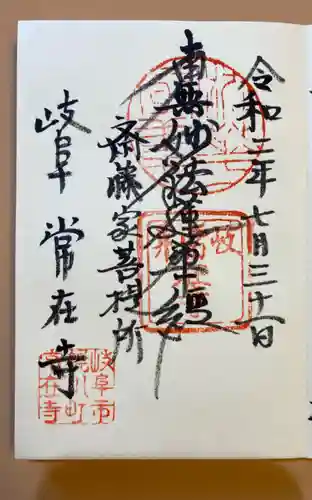 令和二年七月三十一日
南無妙法蓮華経
斎藤家菩提所
岐阜 常在寺
岐阜市
梶川町
常在寺